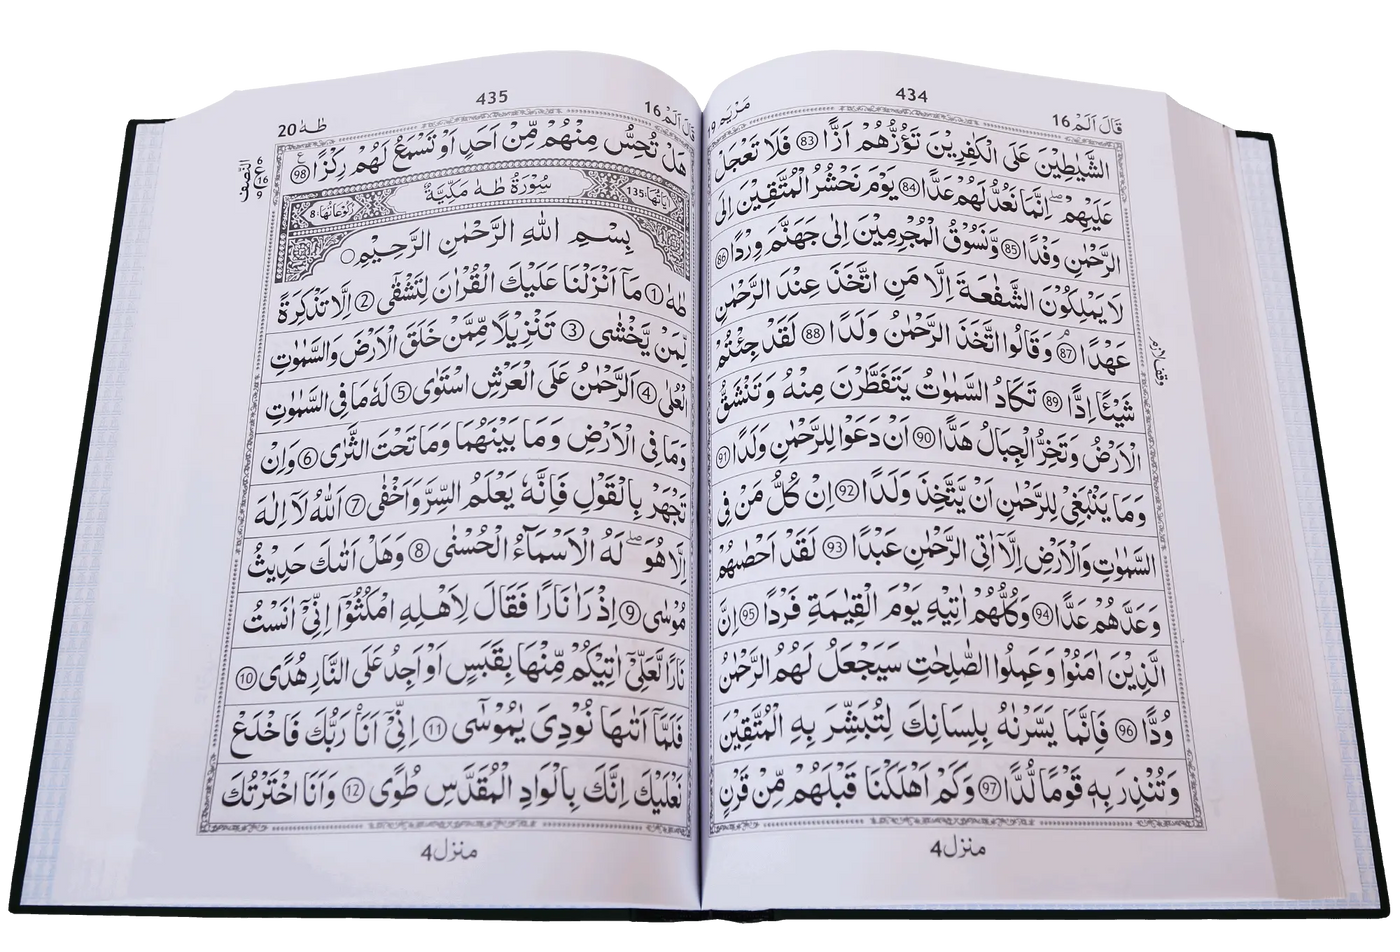 434
مَرْيَم 19
قَالَ اَلَمْ 16
الشَّيٰطِيْنَ عَلَى الْكٰفِرِيْنَ تَؤُزُّهُمْ اَزًّا ﴿83﴾ فَلَا تَعْجَلْ
عَلَيْهِمْ ؕ اِنَّمَا نَعُدُّ لَهُمْ عَدًّا ﴿84﴾ يَوْمَ نَحْشُرُ الْمُتَّقِيْنَ اِلَى
الرَّحْمٰنِ وَفْدًا ﴿85﴾ وَّنَسُوْقُ الْمُجْرِمِيْنَ اِلٰى جَهَنَّمَ وِرْدًا ﴿86﴾
لَا يَمْلِكُوْنَ الشَّفٰعَةَ اِلَّا مَنِ اتَّخَذَ عِنْدَ الرَّحْمٰنِ
عَهْدًا ﴿87﴾ وَقَالُوا اتَّخَذَ الرَّحْمٰنُ وَلَدًا ﴿88﴾ لَقَدْ جِئْتُمْ
شَيْـًٔا اِدًّا ﴿89﴾ تَكَادُ السَّمٰوٰتُ يَتَفَطَّرْنَ مِنْهُ وَتَنْشَقُّ
الْاَرْضُ وَتَخِرُّ الْجِبَالُ هَدًّا ﴿90﴾ اَنْ دَعَوْا لِلرَّحْمٰنِ وَلَدًا ﴿91﴾
وَمَا يَنْۢبَغِيْ لِلرَّحْمٰنِ اَنْ يَّتَّخِذَ وَلَدًا ﴿92﴾ اِنْ كُلُّ مَنْ فِى
السَّمٰوٰتِ وَالْاَرْضِ اِلَّاۤ اٰتِى الرَّحْمٰنِ عَبْدًا ﴿93﴾ لَقَدْ اَحْصٰىهُمْ
وَعَدَّهُمْ عَدًّا ﴿94﴾ وَكُلُّهُمْ اٰتِيْهِ يَوْمَ الْقِيٰمَةِ فَرْدًا ﴿95﴾ اِنَّ
الَّذِيْنَ اٰمَنُوْا وَعَمِلُوا الصّٰلِحٰتِ سَيَجْعَلُ لَهُمُ الرَّحْمٰنُ
وُدًّا ﴿96﴾ فَاِنَّمَا يَسَّرْنٰهُ بِلِسَانِكَ لِتُبَشِّرَ بِهِ الْمُتَّقِيْنَ
وَتُنْذِرَ بِهٖ قَوْمًا لُّدًّا ﴿97﴾ وَكَمْ اَهْلَكْنَا قَبْلَهُمْ مِّنْ قَرْنٍ
منزل 4
435
قَالَ اَلَمْ 16
طٰهٰ 20
هَلْ تُحِسُّ مِنْهُمْ مِّنْ اَحَدٍ اَوْ تَسْمَعُ لَهُمْ رِكْزًا ﴿98﴾
النصف
اٰيَاتُهَا 135
سُوْرَةُ طٰهٰ مَكِّيَّةٌ
رُكُوْعَاتُهَا 8
بِسْمِ اللّٰهِ الرَّحْمٰنِ الرَّحِيْمِ
طٰهٰ ﴿1﴾ مَاۤ اَنْزَلْنَا عَلَيْكَ الْقُرْاٰنَ لِتَشْقٰۤى ﴿2﴾ اِلَّا تَذْكِرَةً
لِّمَنْ يَّخْشٰى ﴿3﴾ تَنْزِيْلًا مِّمَّنْ خَلَقَ الْاَرْضَ وَالسَّمٰوٰتِ
الْعُلٰى ﴿4﴾ اَلرَّحْمٰنُ عَلَى الْعَرْشِ اسْتَوٰى ﴿5﴾ لَهٗ مَا فِى السَّمٰوٰتِ
وَمَا فِى الْاَرْضِ وَمَا بَيْنَهُمَا وَمَا تَحْتَ الثَّرٰى ﴿6﴾ وَاِنْ
تَجْهَرْ بِالْقَوْلِ فَاِنَّهٗ يَعْلَمُ السِّرَّ وَاَخْفٰى ﴿7﴾ اَللّٰهُ لَاۤ اِلٰهَ
اِلَّا هُوَ ؕ لَهُ الْاَسْمَآءُ الْحُسْنٰى ﴿8﴾ وَهَلْ اَتٰىكَ حَدِيْثُ
مُوْسٰى ﴿9﴾ اِذْ رَاٰ نَارًا فَقَالَ لِاَهْلِهِ امْكُثُوْۤا اِنِّيْۤ اٰنَسْتُ
نَارًا لَّعَلِّيْۤ اٰتِيْكُمْ مِّنْهَا بِقَبَسٍ اَوْ اَجِدُ عَلَى النَّارِ هُدًى ﴿10﴾
فَلَمَّاۤ اَتٰىهَا نُوْدِيَ يٰمُوْسٰى ﴿11﴾ اِنِّيْۤ اَنَا رَبُّكَ فَاخْلَعْ
نَعْلَيْكَ اِنَّكَ بِالْوَادِ الْمُقَدَّسِ طُوًى ﴿12﴾ وَاَنَا اخْتَرْتُكَ
منزل 4